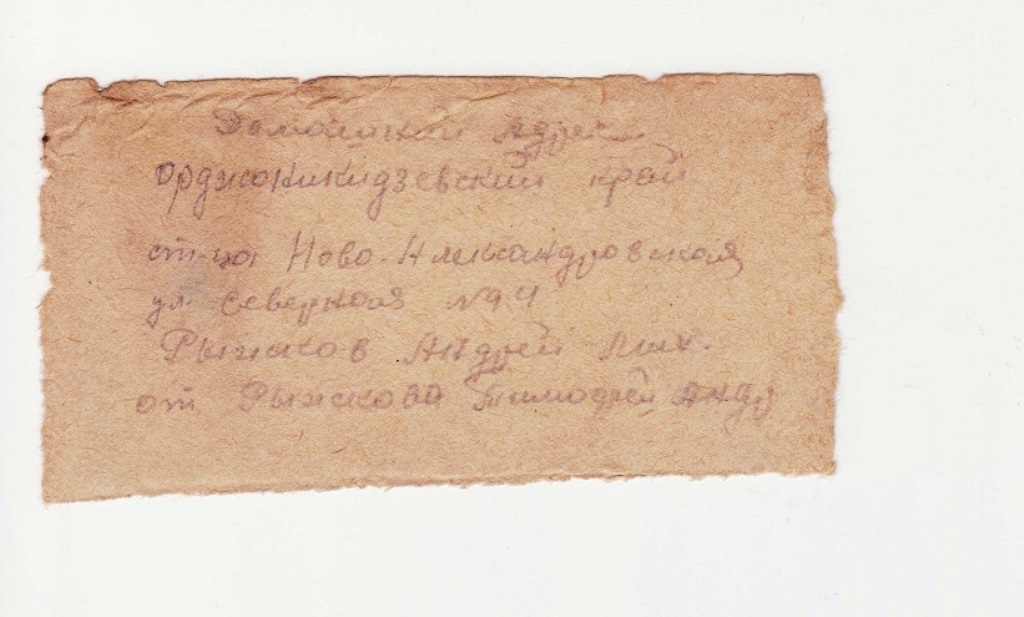 Домашний адрес
Орджоникидзевский край
ст-ца Ново-Александровская
ул Северная №94
Рыжков Андрей Мих.
от Рыжкова Тимофей Андр